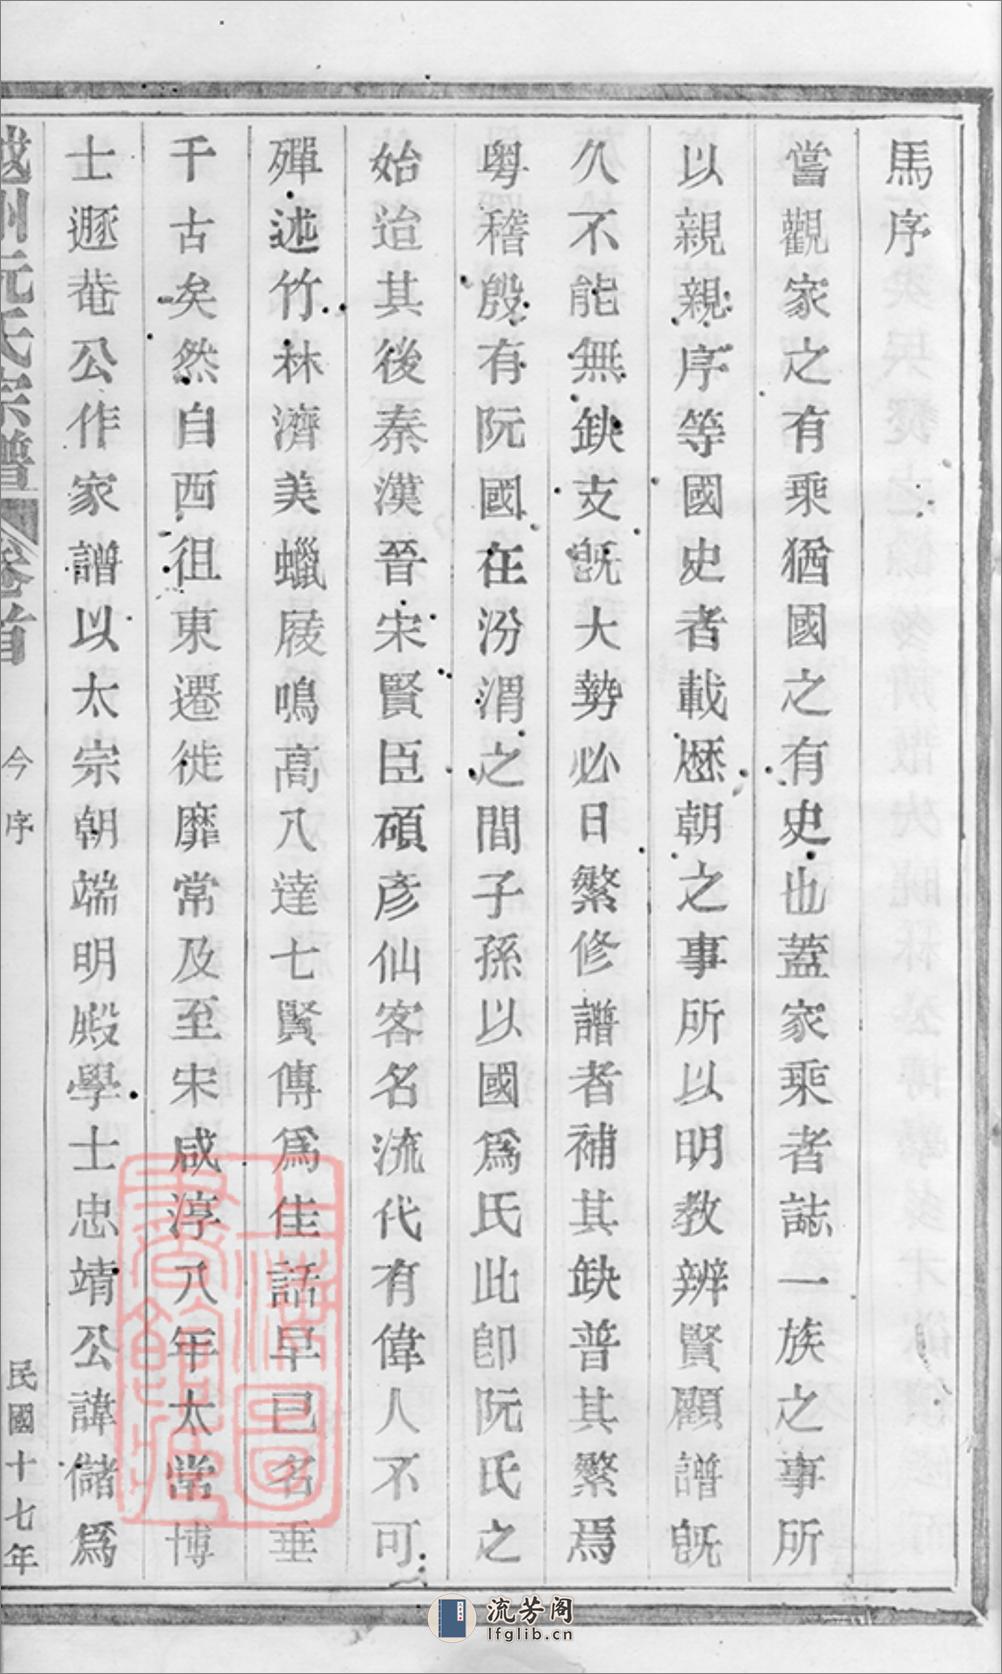 馬序
嘗觀家之有乘猶國之有史也蓋家乘者誌一族之事所
以親親序等國史者載歷朝之事所以明教辨賢顧譜旣
久不能無缺支旣大勢必日繁修譜者補其缺普其繁焉
粵稽殷有阮國在汾渭之間子孫以國爲氏此卽阮氏之
始迨其後秦漢晉宋賢臣碩彥仙客名流代有偉人不可
殫述竹林濟美蠟屐鳴高八達七賢傳爲佳話早已名垂
千古矣然自西徂東遷徙靡常及至宋咸淳八年太常博
士遯菴公作家譜以太宗朝端明殿學士忠靖公諱儲爲
越州阮氏宗譜 卷首 今序 民國十七年
上海圖書館藏
流芳阁
lfglib.cn